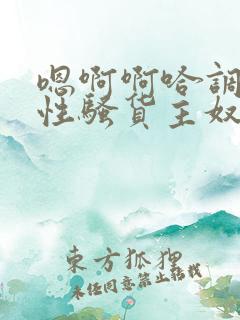 嗯啊啊哈調
性騷货主奴
東方狐狸
未经同意禁止转载